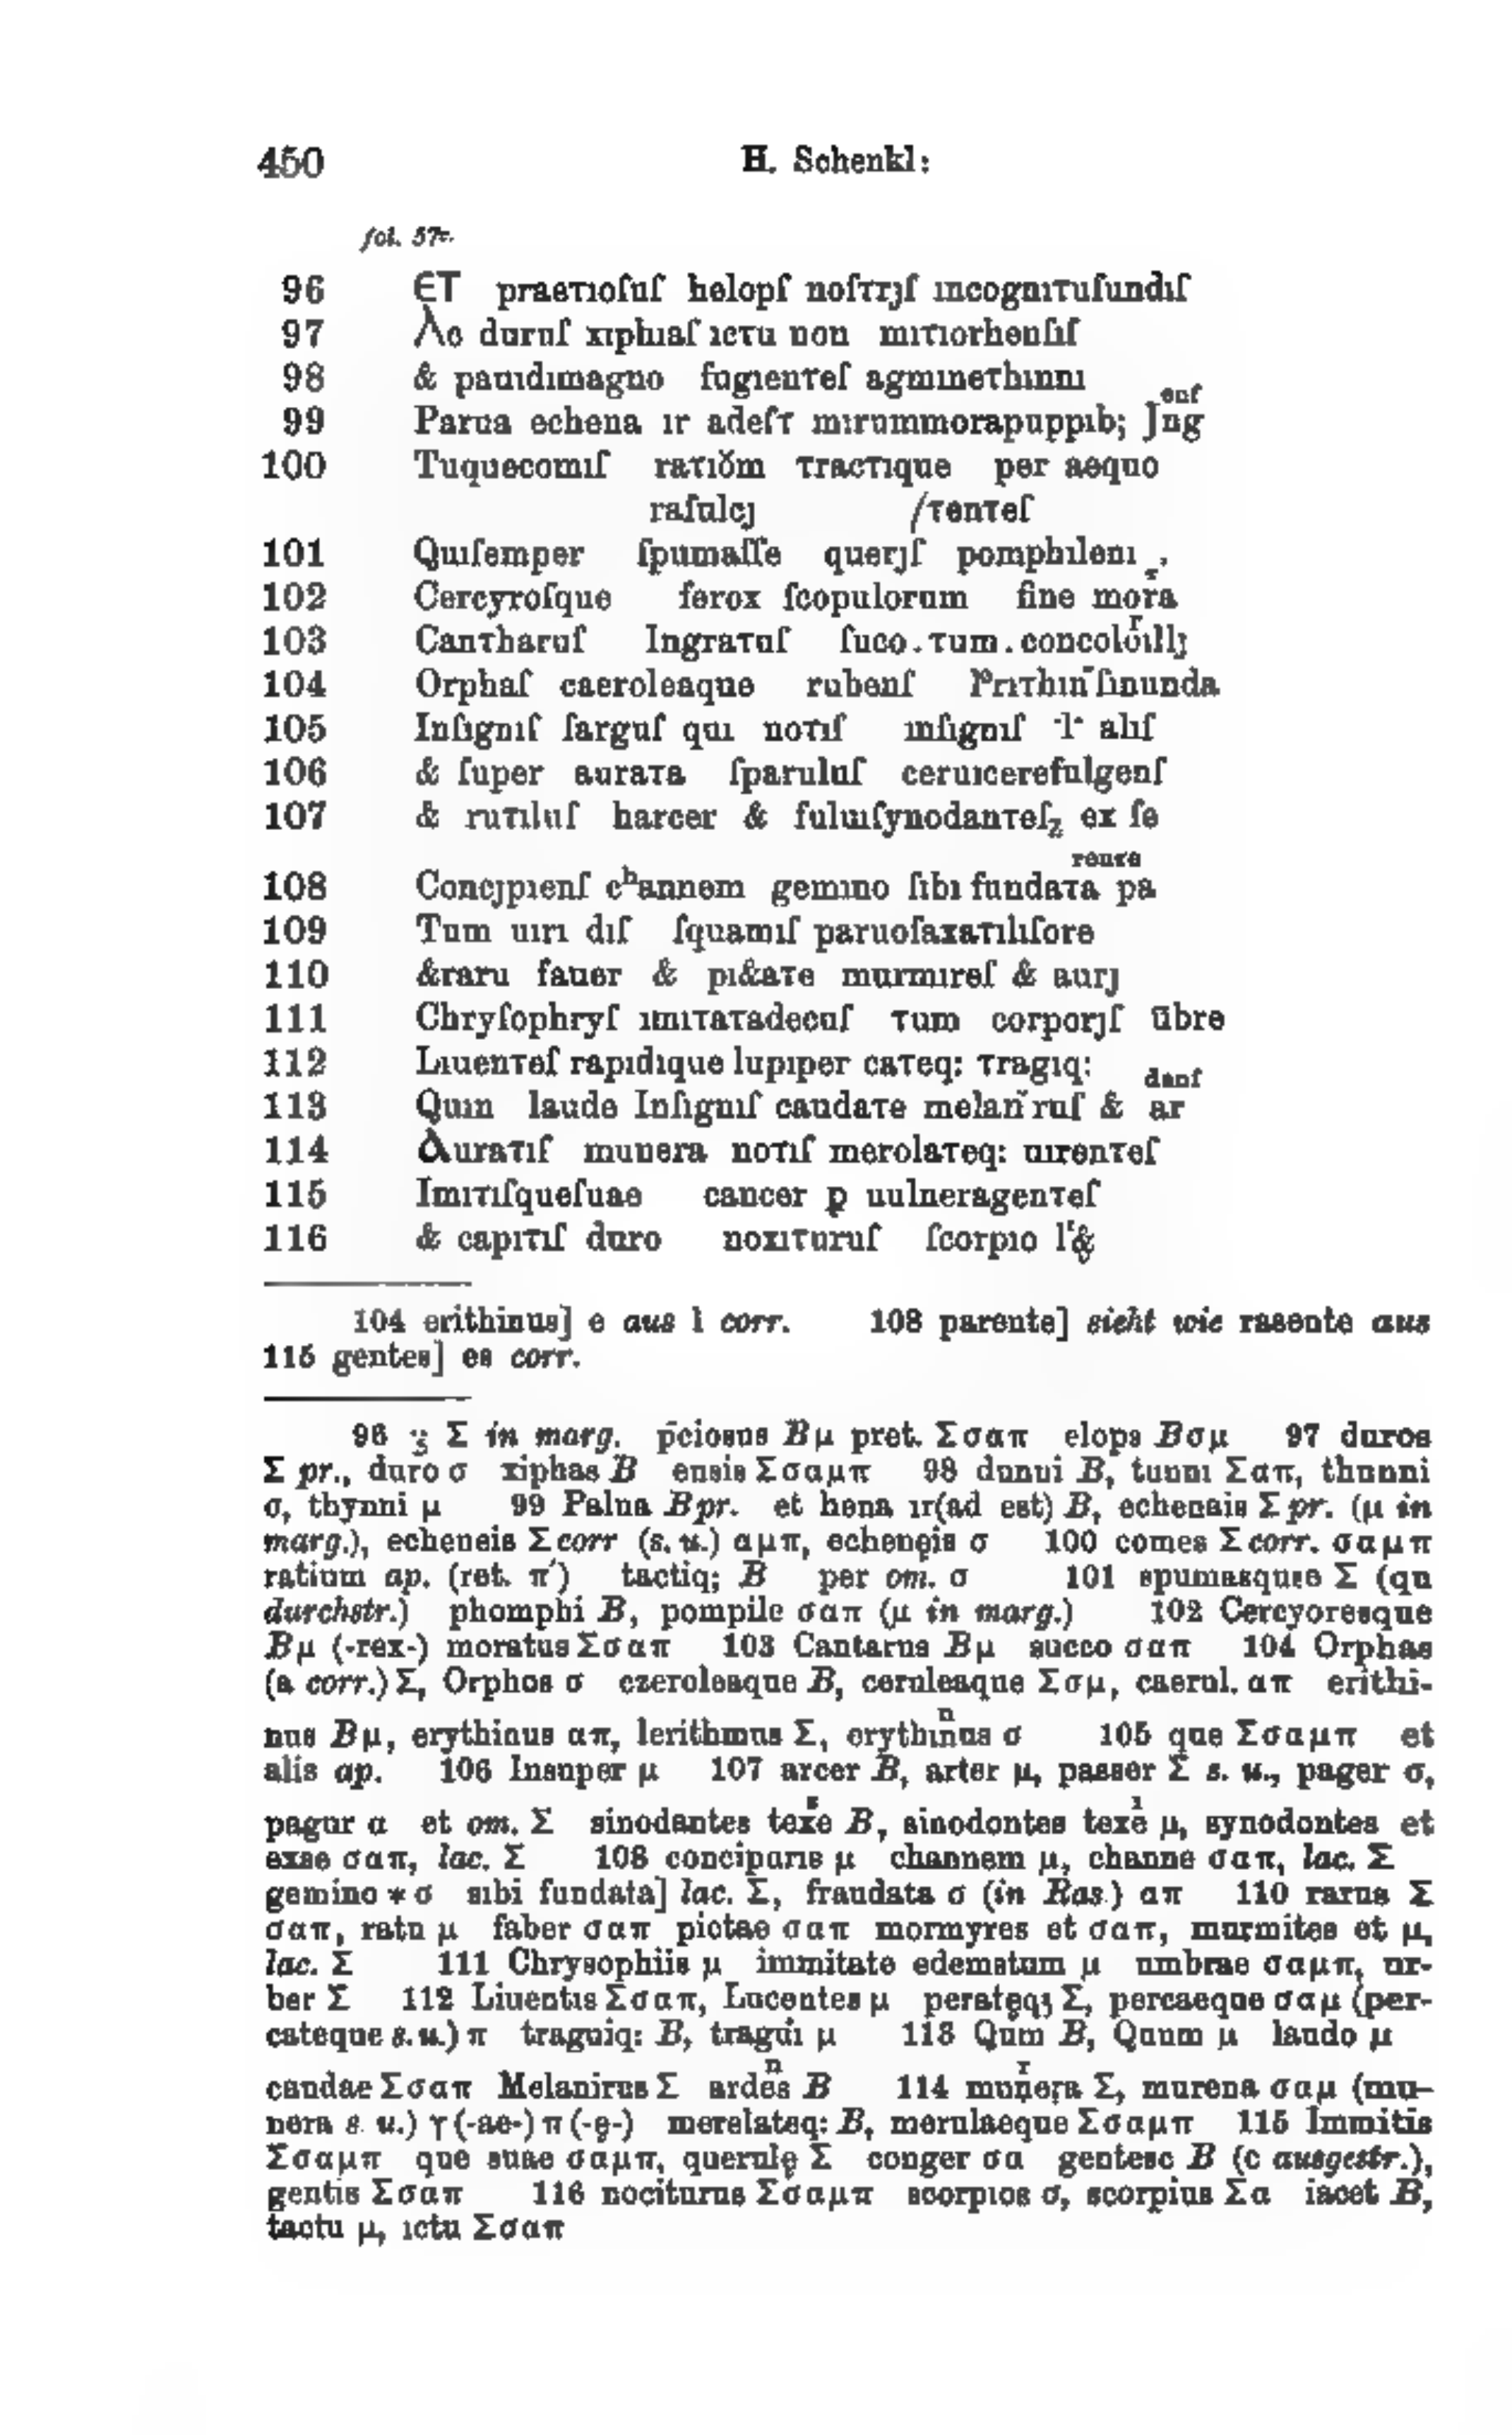 450 H. Schenkl:
fol. 57r.
96 ET praeτıoſuſ helopſ noſτrȷſ ıncognıτuſundıſ
97 λc duruſ xıphıaſ ıcτu non mıτıorhenſıſ
98 & pauıdımagno fugıenτeſ agmıneτhınnı
99 Parua echena ır adeſτ mırummorapuppıb; Jng
enſ
100 Tuquecomıſ raτıŏm τracτıque per aequo
raſulcȷ /τenτeſ
101 Quıſemper ſpumaſſe querȷſ pomphılenı
102 Cercyroſque ferox ſcopulorum fine mora
103 Canτharuſ Ingraτuſ ſuco.τum.concoloıllȷ
r
104 Orphaſ caeroleaque rubenſ ſınunda
105 Inſıgnıſ ſarguſ quı noτıſ ınſıgnıſ ·l· alıſ
106 & ſuper auraτa ſparuluſ ceruıcerefulgenſ
107 & ruτıluſ harcer & fuluıſynodanτeſ ex ſe
reuτe
108 Concȷpıenſ cʰannem gemıno ſıbı fundaτa pa
109 Tum uırı dıſ ſquamıſ paruoſaxaτılıſore
110 &raru fauer & pı&aτe murmıreſ & aurȷ
111 Chryſophryſ ımıτaτadecuſ τum corporȷſ ūbre
112 Lıuenτeſ rapıdıque lupıper caτeq: τragıq:
danſ
113 Quın laude Inſıgnıſ caudaτe melan ruſ & ar
114 λuraτıſ munera noτıſ merolaτeq: uırenτeſ
115 Imıτıſqueſuae cancer ꝑ uulneragenτeſ
116 & capıτıſ duro noxıτuruſ ſcorpıo l'&
104 erithinus] e aus l corr. 108 parente] sieht wie rasente aus
115 gentes] es corr.
96 Σ in marg. p̄ciosus Bμ pret. Σσαπ elops Bσμ 97 duros
Σ pr., duro σ xiphas B ensis Σσαμπ 98 dunui B, tunnı Σαπ, thunni
σ, thynni μ 99 Palua Bpr. et hena ır(ad est) B, echenais Σ pr. (μ in
marg.), echeneis Σ corr (s. u.) αμπ, echenęis σ 100 comes Σ corr. σαμπ
ratium ap. (ret. π') tactiq; B per om. σ 101 spumasquıe Σ (qu
durchstr.) phomphi B, pompile σαπ (μ in marg.) 102 Cercyoresque
Bμ (-rex-) moratus Σσαπ 103 Cantarus Bμ succo σαπ 104 Orphas
(a corr.) Σ, Orphos σ czeroleaque B, ceruleaque Σσμ, caerul. απ erithi-
n
nus Bμ, erythinus απ, lerithmus Σ, erythınus σ 105 que Σσαμπ et
alis ap. 106 Insuper μ 107 arcer B, arter μ, passer Σ s. u., pager σ,
s ı
pagur α et om. Σ sinodantes texe B, sinodontes texe μ, synodontes et
exse σαπ, lac. Σ 108 conciparis μ channem μ, channe σαπ, lac. Σ
gemino * σ sıbi fundata] lac. Σ, fraudata σ (in Ras.) απ 110 rarus Σ
σαπ, ratu μ faber σαπ pictae σαπ mormyres et σαπ, murmites et μ,
lac. Σ 111 Chrysophiis μ immitate edematum μ umbrae σαμπ, ur-
ber Σ 112 Liuentıs Σσαπ, Lucentes μ peratęq; Σ, percaeque σαμ (per-
cateque s. u.) π traguiq: B, tragui μ 113 Qum B, Quum μ laudo μ
n r
caudae Σσαπ Melanirus Σ ardes B 114 munera Σ, murena σαμ (mu-
nera s. u.) γ (-ae-) π (-ę-) merelateq: B, merulaeque Σσαμπ 115 Immitis
Σσαμπ que suae σαμπ, querulę Σ conger σα gentesc B (c ausgestr.),
gentis Σσαπ 116 nociturus Σσαμπ scorpıos σ, scorpius Σα iacet B,
tactu μ, ıctu Σσαπ